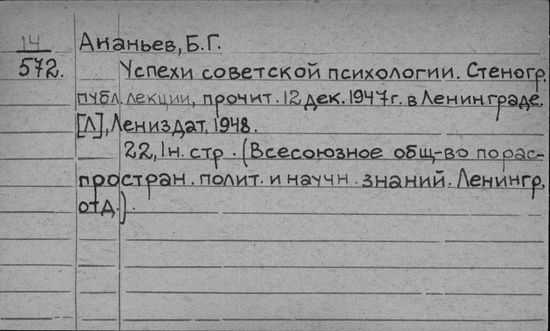 14
572.
Ананьев, Б.Г.
Успехи советской психологии. Стеногр.
публ. лекции, прочит. 12 дек. 1947г. в Ленинграде.
[Л], Лениздат, 1948.
22, 1н. стр. (Всесоюзное общ-во по рас-
простран. полит. и научн. знаний. Ленингр.
отд.).